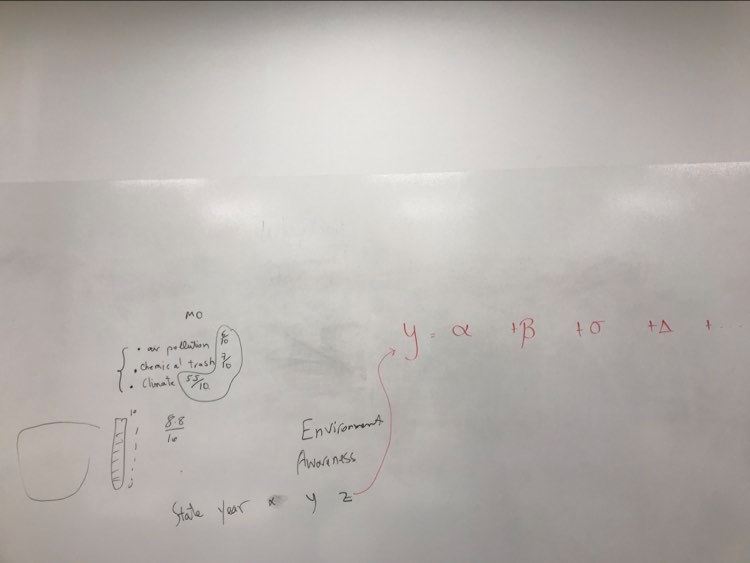 MO
• air pollution 6/10
• chemical trash 7/10
• Climate 5.5/10
10
8.8/10
y = α + β + σ + Δ + ...
Environment
Awareness
State year x y z